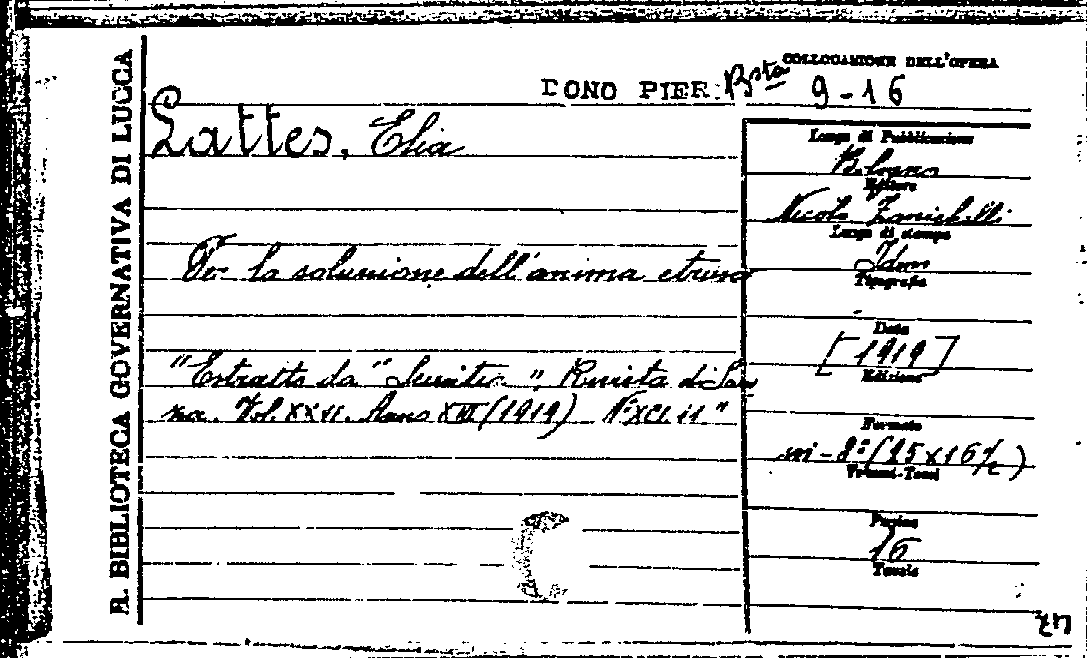 R. BIBLIOTECA GOVERNATIVA DI LUCCA
COLLOCAZIONE DELL'OPERA
DONO PIER: Bsta 9-16
Lattes, Elia
Per la soluzione dell'anima etrusca
"Estratto da "Scientia", Rivista di Scien
za. Vol. XXVI. Anno XIII (1919) N. XCI. 11"
Luogo di Pubblicazione
Bologna
Editore
Nicola Zanichelli
Luogo di stampa
Idem
Tipografia
Data
[1919]
Edizione
Formato
in-8º (25x16½)
Volumi-Tomi
Pagine
16
Tavole